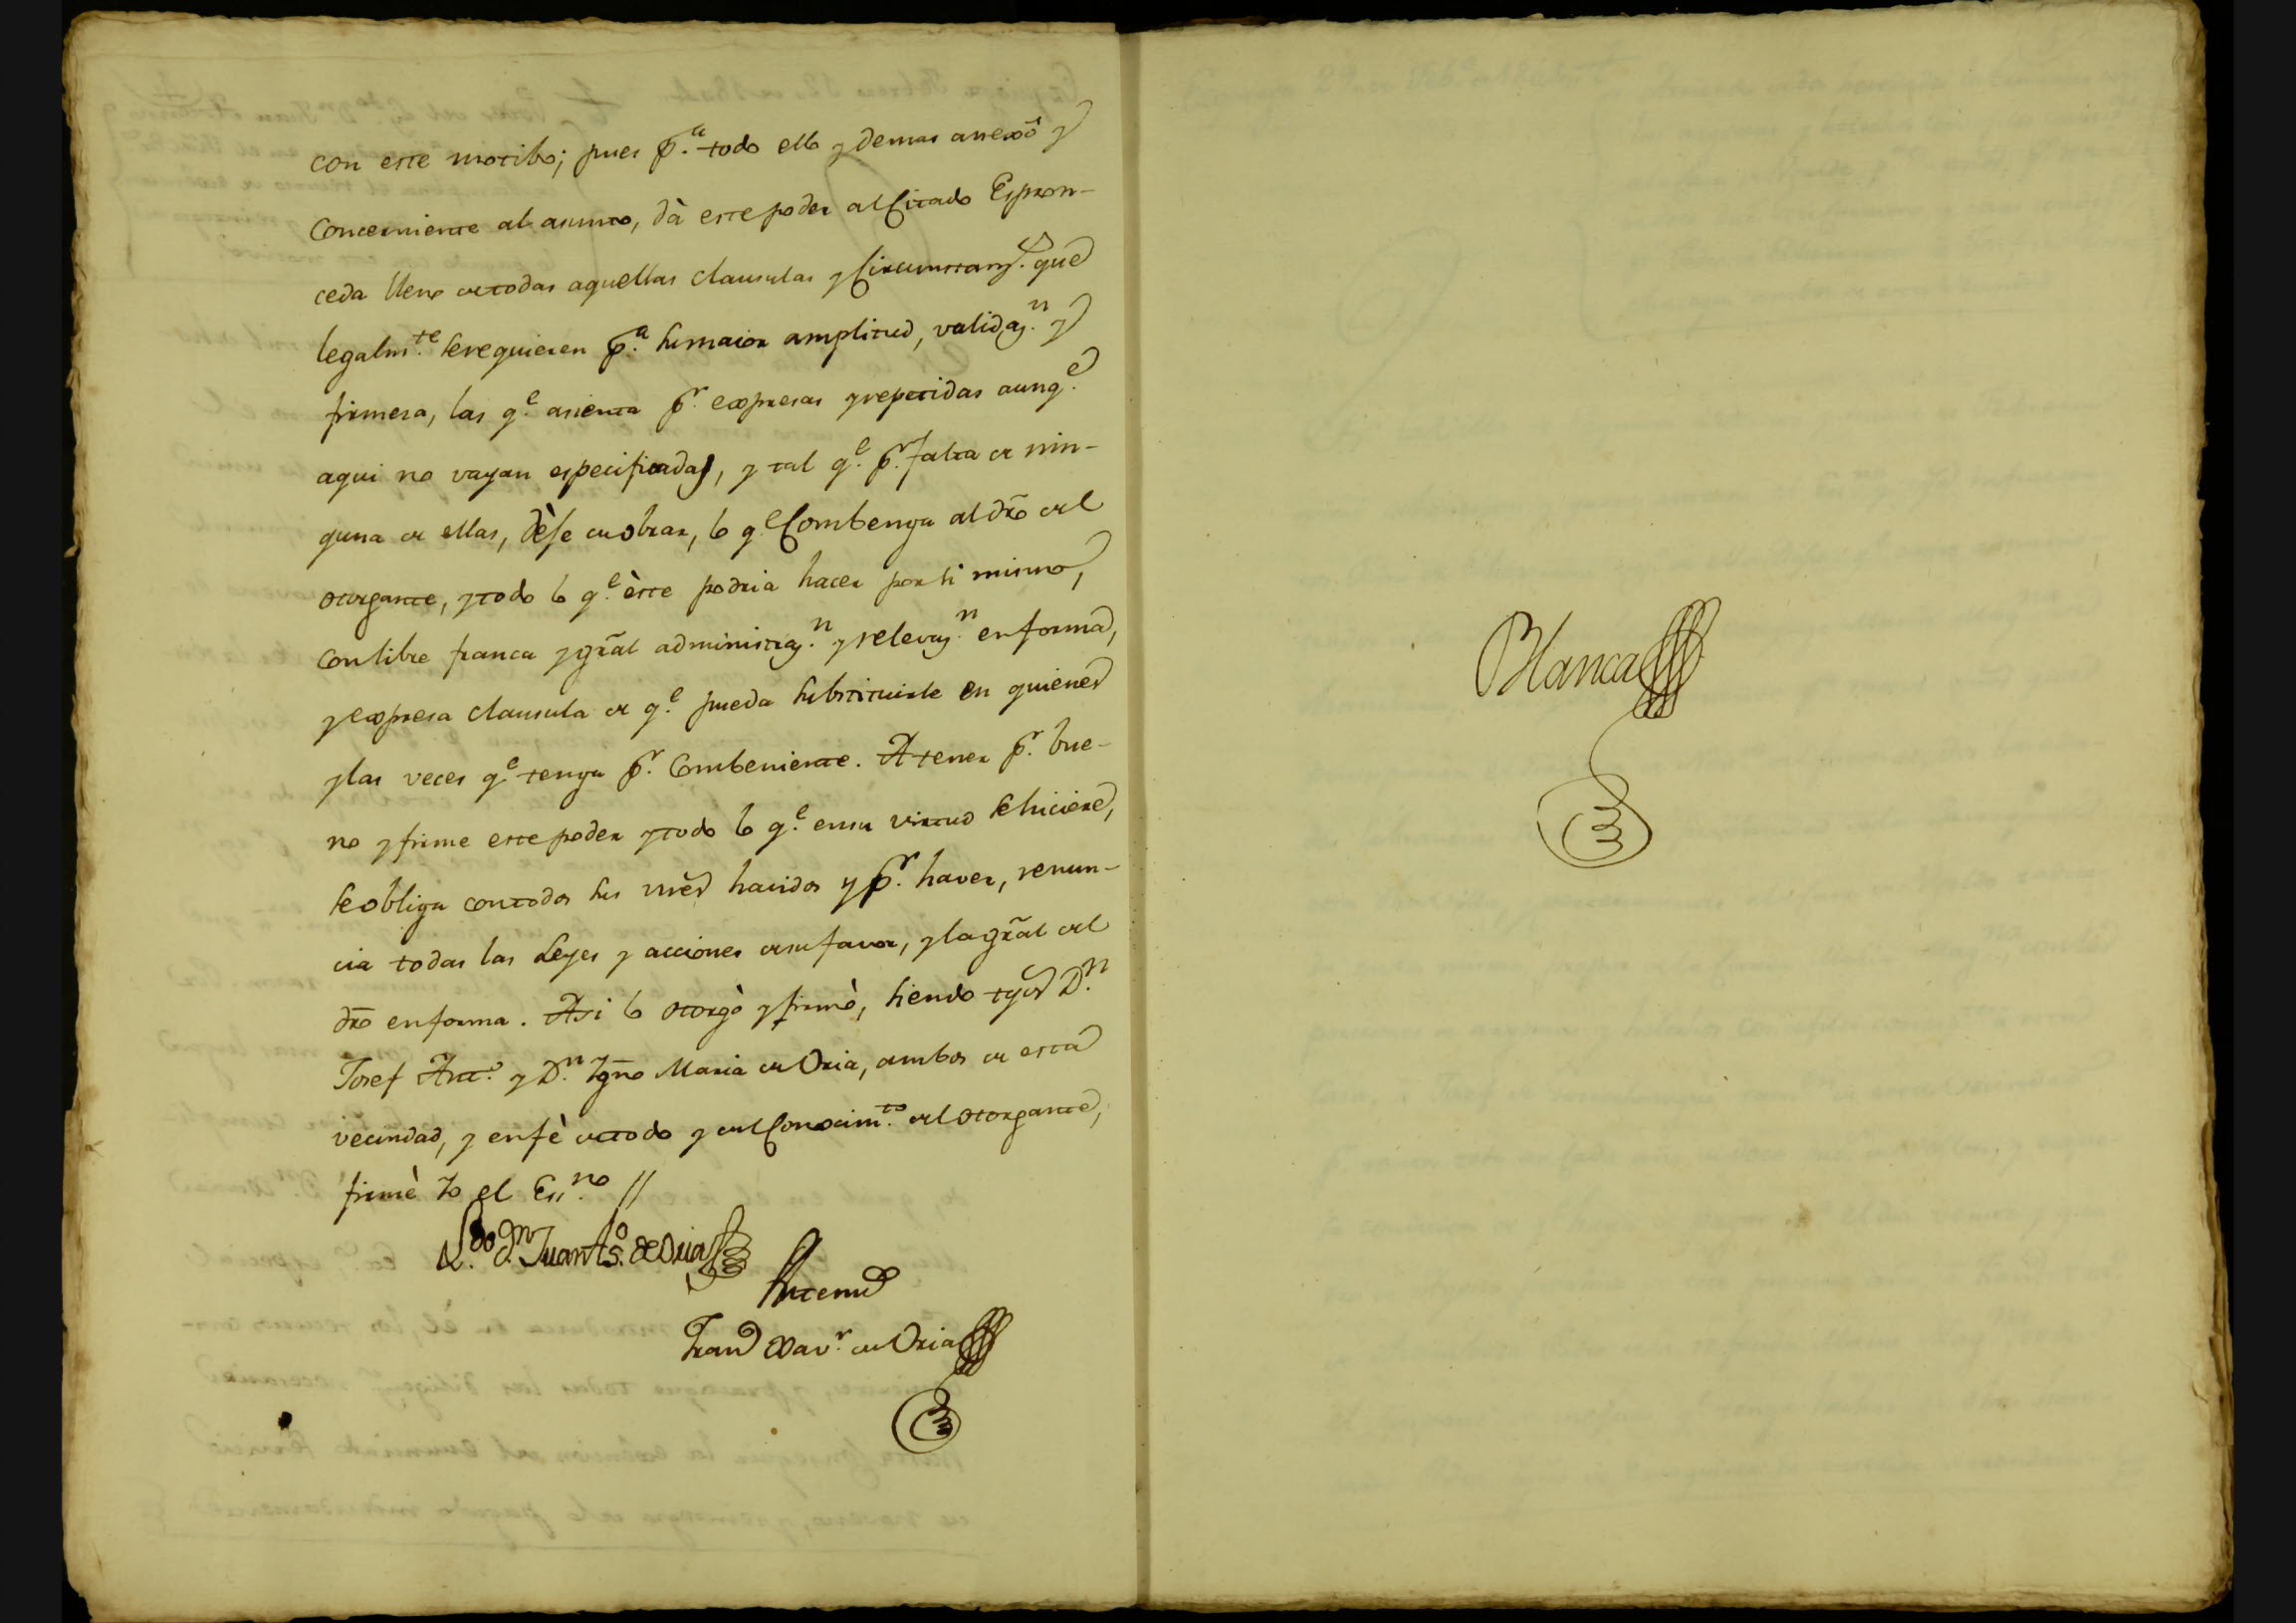 con este motibo; pues p.ª todo ello y demas anexô y
Concerniente al asunto, dà este poder al Citado Espron-
ceda lleno de todas aquellas clausulas y Circunstanz.s que
legalm.te se requieren p.ª su maior amplitud, validaz.n y
firmesa, las q.e asienta p.r expresas y repetidas aunq.e
aqui no vayan especificadas, y tal q.e p.r falta de nin-
guna de ellas, dèse de obrar, lo q.e Combenga al dr̃o del
otorgante, y todo lo q.e èste podria hacer por si mismo,
con libre franca y gr̃al administraz.n y relevaz.n en forma,
y expresa clausula de q.e pueda substituirle en quienes
y las veces q.e tenga p.r Combeniente. A tener p.r bue-
no y firme este poder y todo lo q.e en su virtud se hiciere,
se obliga con todos sus vnẽs havidos y p.r haver, renun-
cia todas las Leyes y acciones de su favor, y la gr̃al del
dr̃o en forma. Asi lo otorgò y firmò, siendo tgõs D.n
Josef Ant.o y D.n Ygñо Maria de Oria, ambos de esta
vecindad, y en fè de todo y del Conocim.to del otorgante,
firmè Yo el Ess.no //
L.do D.n Juan As.o de Oria
Antemi
Fran.co Xav.r de Oria
Blanca